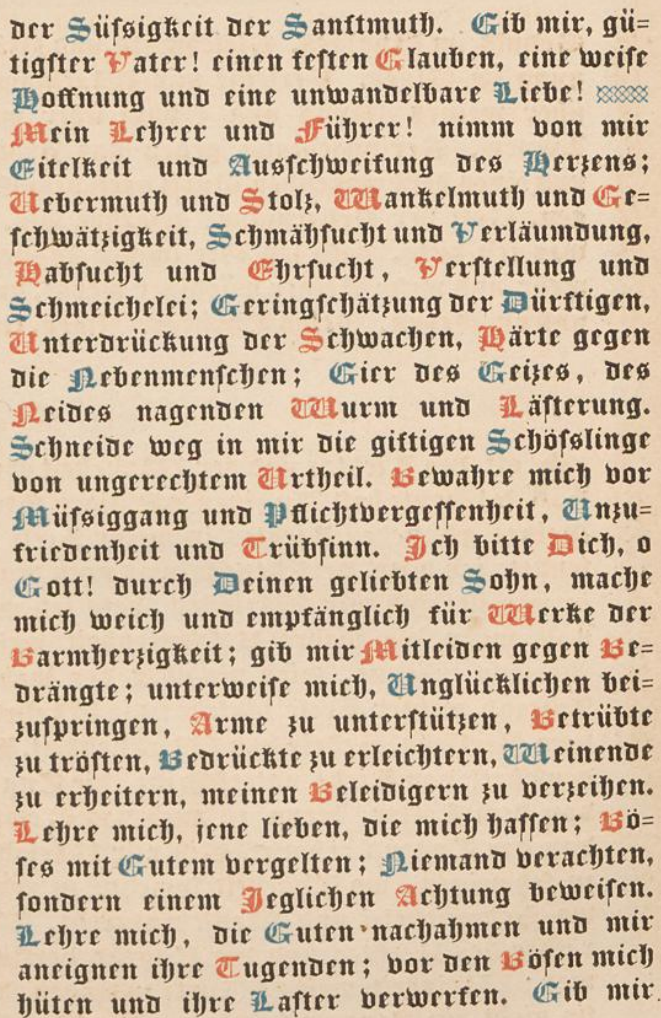 der Süſsigkeit der Sanftmuth. Gib mir, gü=
tigſter Vater! einen feſten Glauben, eine weiſe
Hoffnung und eine unwandelbare Liebe!
Mein Lehrer und Führer! nimm von mir
Eitelkeit und Ausſchweifung des Herzens;
Uebermuth und Stolz, Wankelmuth und Ge=
ſchwätzigkeit, Schmähſucht und Verläumdung,
Habſucht und Ehrſucht, Verſtellung und
Schmeichelei; Geringſchätzung der Dürftigen,
Unterdrückung der Schwachen, Härte gegen
die Nebenmenſchen; Gier des Geizes, des
Neides nagenden Wurm und Läſterung.
Schneide weg in mir die giftigen Schöſslinge
von ungerechtem Urtheil. Bewahre mich vor
Müſsiggang und Pflichtvergeſſenheit, Unzu=
friedenheit und Trübſinn. Ich bitte Dich, o
Gott! durch Deinen geliebten Sohn, mache
mich weich und empfänglich für Werke der
Barmherzigkeit; gib mir Mitleiden gegen Be=
drängte; unterweiſe mich, Unglücklichen bei=
zuſpringen, Arme zu unterſtützen, Betrübte
zu tröſten, Bedrückte zu erleichtern, Weinende
zu erheitern, meinen Beleidigern zu verzeihen.
Lehre mich, jene lieben, die mich haſſen; Bö=
ſes mit Gutem vergelten; Niemand verachten,
ſondern einem Jeglichen Achtung beweiſen.
Lehre mich, die Guten nachahmen und mir
aneignen ihre Tugenden; vor den Böſen mich
hüten und ihre Laſter verwerfen. Gib mir